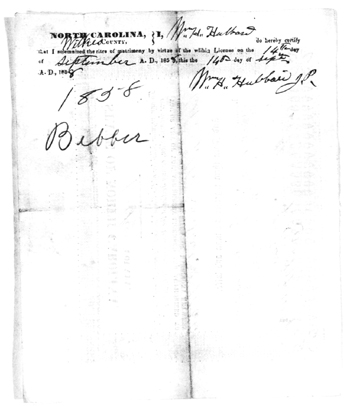 NORTH CAROLINA, } I, Wm. H. Hubbard
Wilkes COUNTY. } do hereby certify
that I solemnized the rites of matrimony by virtue of the within License on the 14th day
of September A. D., 1858, this the 14th day of Sept.
A. D., 1858
Wm. H. Hubbard J.P.
1858
Bebber